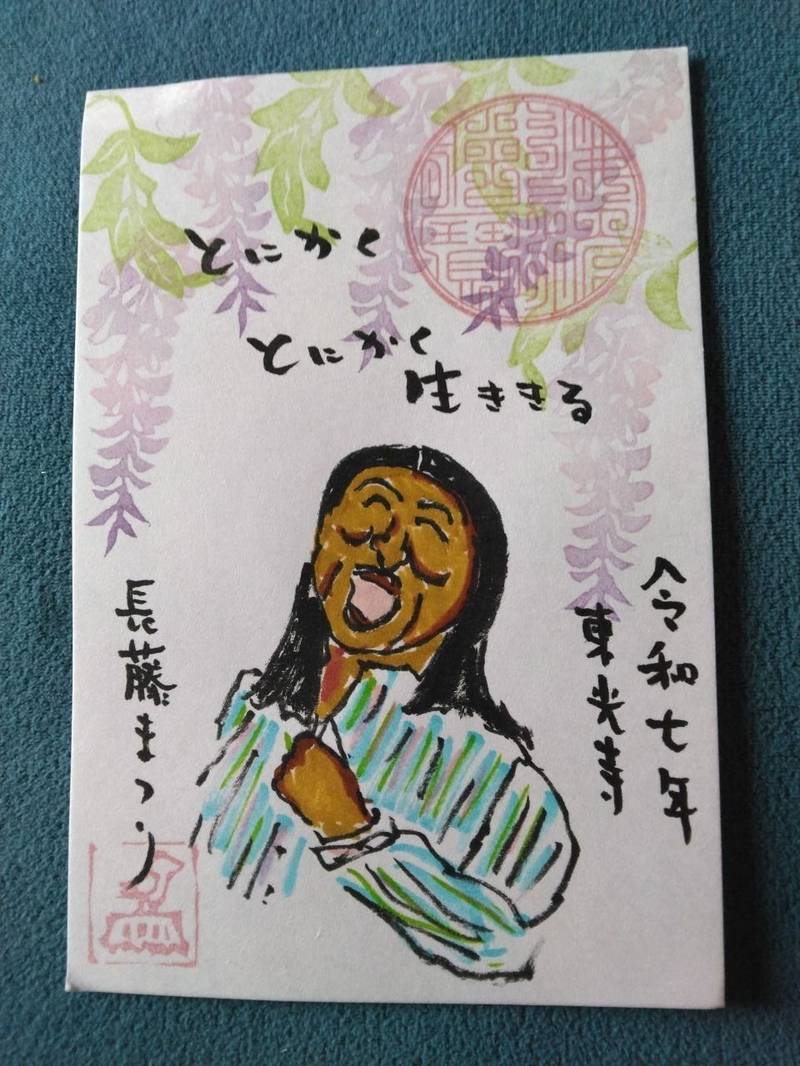 とにかく
とにかく
生ききる
令和七年
東光寺
長藤まつり